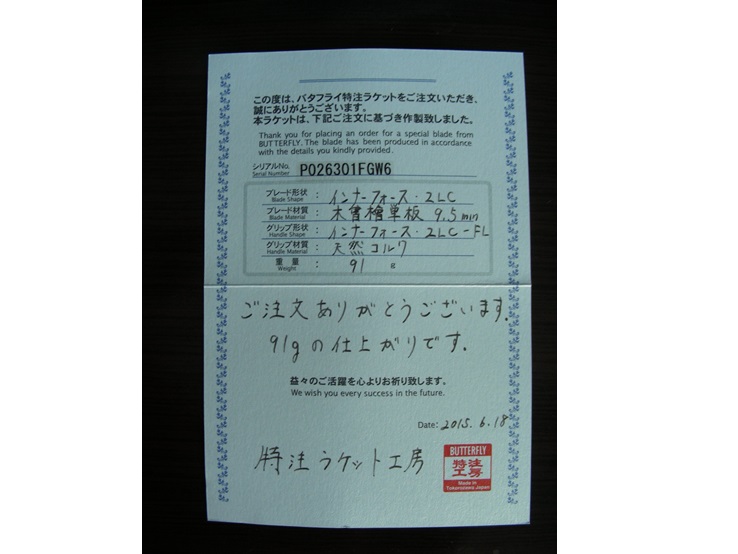 この度は、バタフライ特注ラケットをご注文いただき、
誠にありがとうございます。
本ラケットは、下記ご注文に基づき作製致しました。
Thank you for placing an order for a special blade from
BUTTERFLY. The blade has been produced in accordance
with the details you kindly provided.
シリアルNo.
Serial Number
P026301FGW6
ブレード形状 : インナーフォース・ZLC
Blade Shape
ブレード材質 : 木曽檜単板 9.5mm
Blade Material
グリップ形状 : インナーフォース・ZLC-FL
Handle Shape
グリップ材質 : 天然コルク
Handle Material
重量 : 91 g
Weight
ご注文ありがとうございます.
91gの仕上がりです.
益々のご活躍を心よりお祈り致します。
We wish you every success in the future.
Date: 2015. 6. 18
特注ラケット工房
BUTTERFLY
特注
工房
Made in
Tokorozawa Japan